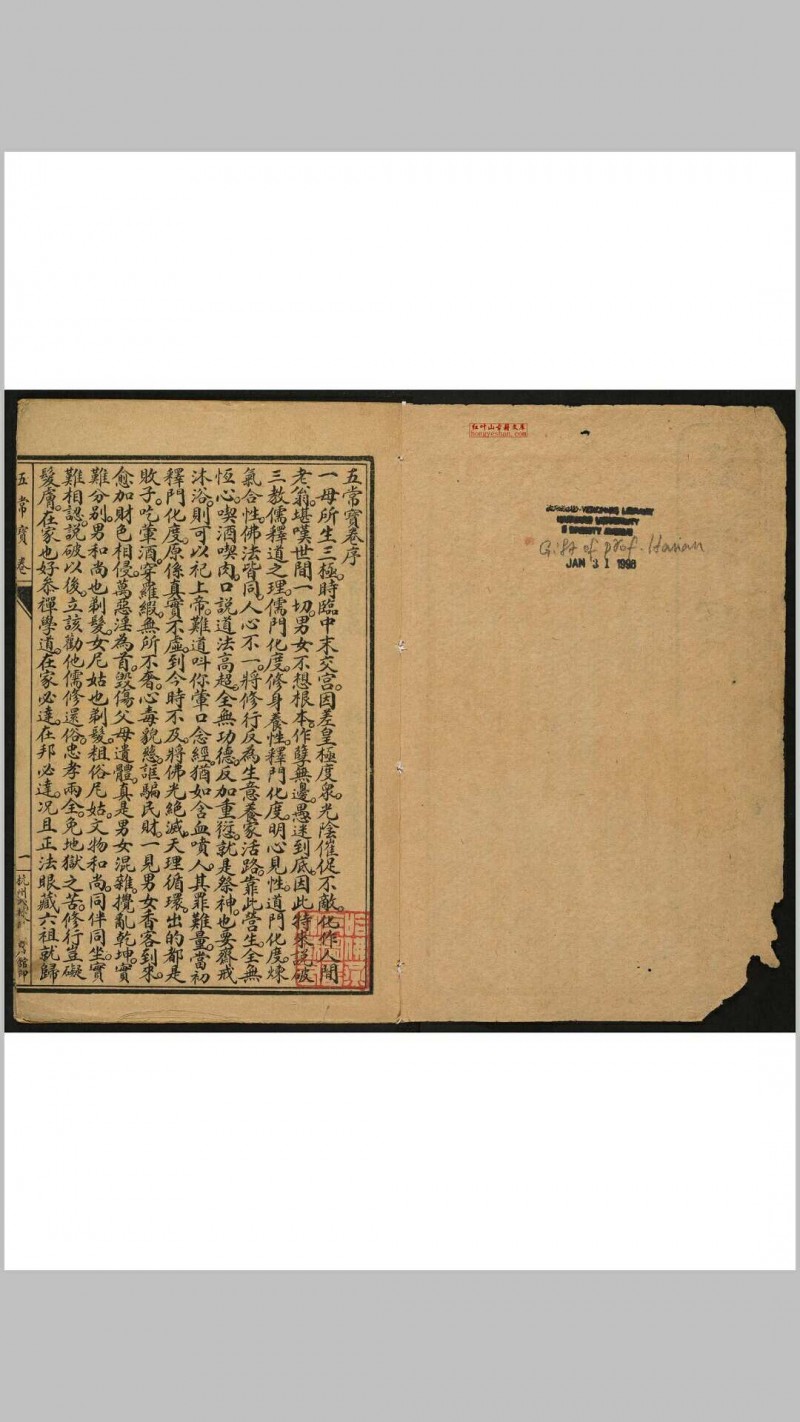 红叶山古籍文库
hongyeshan.com
HARVARD-YENCHING LIBRARY
HARVARD UNIVERSITY
2 DIVINITY AVENUE
Gift of prof. Hanan
JAN 31 1998
五常寶卷序
一母所生三極。時臨中末交宮。因差皇極度衆。光陰催促不敵。化作人間
老翁。堪嘆世間一切。男女不想根本。作孽無邊。愚迷到底。因此特來說破
三教儒釋道之理。儒門化度。修身養性。釋門化度。明心見性。道門化度。煉
氣合性。佛法皆同。人心不一。將修行反為生意。養家活路。靠此營生。全無
恆心。喫酒喫肉。口說道法高超。全無功德。反加重愆。就是祭神。也要齋戒
沐浴。則可以祀上帝。難道叫你葷口念經。猶如含血噴人。其罪難量。當初
釋門化度。原係真實不虛。到今時不及。將佛光絕滅。天理循環。出的都是
敗子。吃葷酒。穿羅緞。無所不奢。心毒貌慈。誆騙民財。一見男女香客到來。
愈加財色相侵。萬惡淫為首。毀傷父母遺體。真是男女混雜。攪亂乾坤。實
難分別。男和尚也剃髮。女尼姑也剃髮。粗俗尼姑。文物和尚。同伴同坐。實
難相認。說破以後。立該勸他儒修還俗。忠孝兩全。免地獄之苦。修行豈礙
髮膚。在家也好叅禪學道。在家必達。在邦必達。况且正法眼藏。六祖就歸
五常寶卷
一
杭州